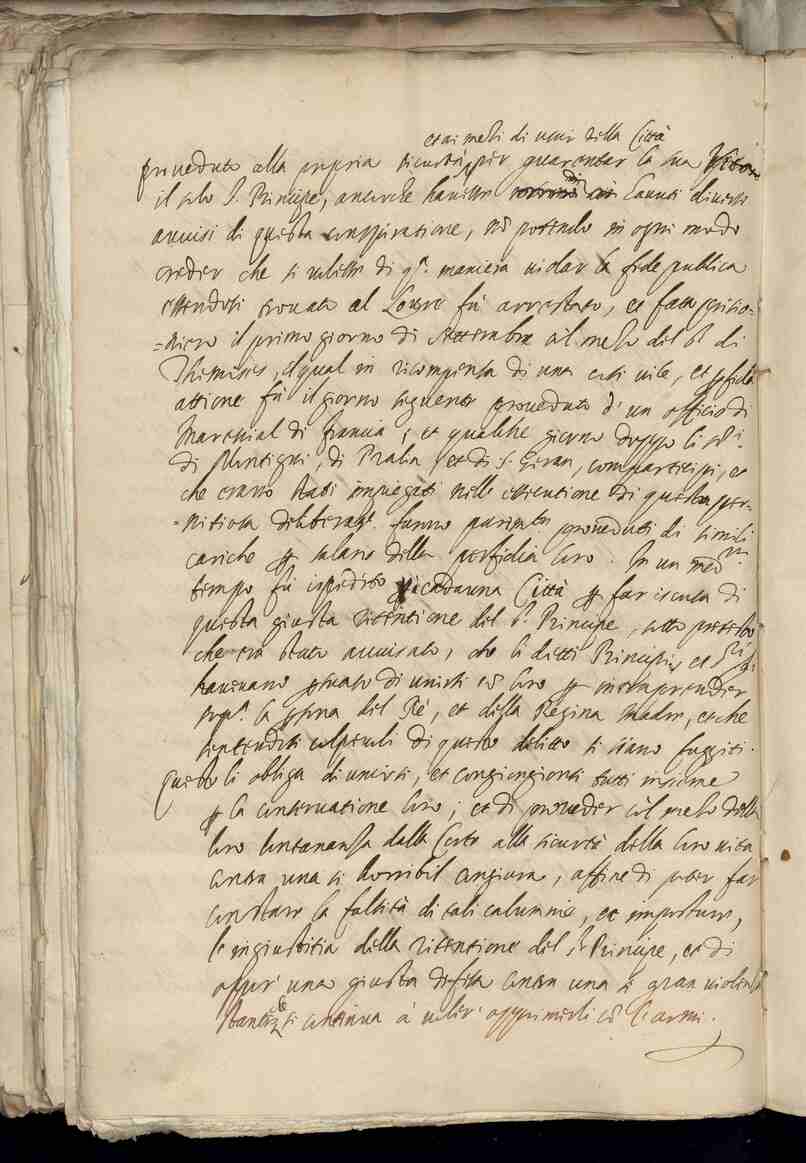 et ai mezi di uscir della Città
proveduto alla propria sicurtà, per guarentar la sua
il solo S. Principe, ancorche havesse havuti diversi
avvisi di questa conspiratione, nõ potendo in ogni modo
creder che si volesse di q.ª maniera violar la fede publica
essendosi trovato al Louvre fù arrestato, et fatto prigio=
=niero il primo giorno di Settembre col mezo del S.r di
Themines, il qual in ricompensa di una così vile, et perfida
attione fù il giorno seguente proveduto d'un officio di
Mareschal di Francia, et qualche giorno doppo li SS.ri
di Montigni, di Pralin, et di S. Geran, comparticipi, et
che erano stati impiegati nelle essecutione di questa per=
=nitiosa deliberat.e furono parimente proveduti di simili
cariche per salario della perfidia loro. In un med.mo
tempo fù ispedito cadauna Città per far iscusa di
questa giusta ritentione del S. Principe, sotto pretesto
che era stato avvisato, che li detti Principi, et
havevano pensato di unirsi cõ loro per intraprender
sop.ª la persona del Rè, et della Regina Madre, et che
sentendosi colpevoli di questo delitto si siano fuggiti.
Questo li obliga di unirsi, et congiongersi tutti insieme
per la conservatione loro; et di proveder col mezo della
loro lontananza dalla Corte alla sicurtà della loro vita
contra una si horribil congiura, affine di poter far
constare la falsità di tali calumnie, et imposture,
le ingiustitia della ritentione del S.r Principe, et di
una giusta difesa contra una si gran violenza
si continua à voler opprimerli cõ l'armi.